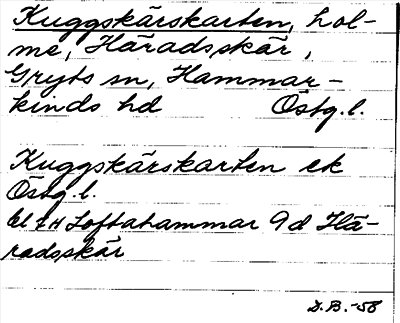 Kuggskärskarten, hol-
me, Häradsskär,
Gryts sn, Hammar-
kinds hd Östg.l.
Kuggskärskarten ek
Östg.l.
bl 4 Loftahammar 9d Hä-
radsskär
D.B.-58